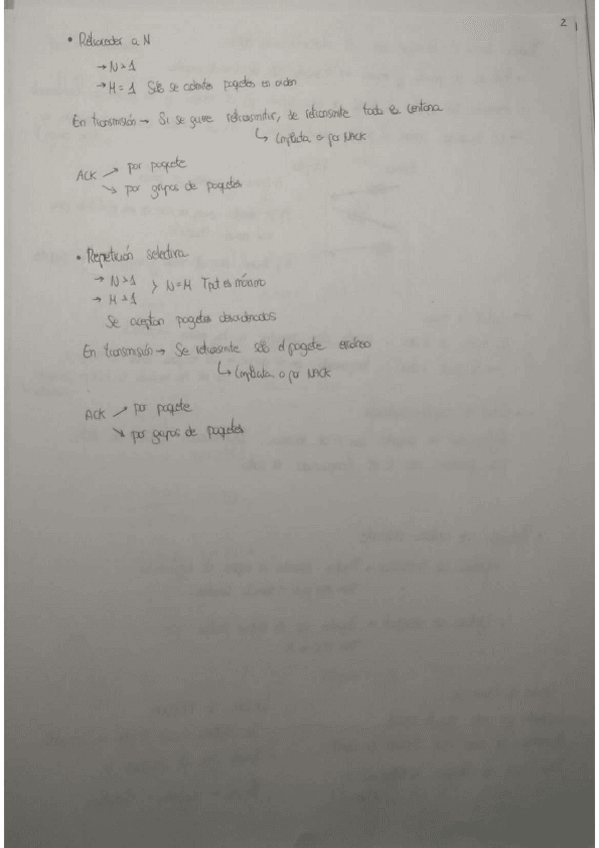 2
• Retroceder a N
→ N>1
→ M=1 Sólo se admiten paquetes en orden
En transmisión → Si se quiere retransmitir, se retransmite toda la ventana
↳ Implícita o por NACK
ACK ↗ por paquete
↘ por grupos de paquetes
• Repetición selectiva
→ N>1
→ M>1
} N=M Tput es máximo
Se aceptan paquetes desordenados
En transmisión → Se retransmite sólo el paquete erróneo
↳ Implícita o por NACK
ACK ↗ por paquete
↘ por grupos de paquetes